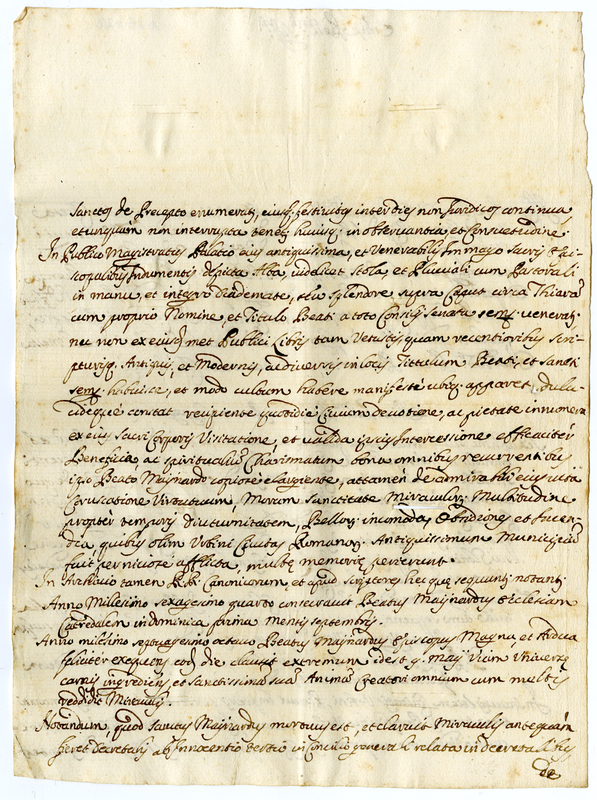 Sanctos de Precepto enumerat, eiusq; festivitas inter dies non Juridicos continua
et unquam non interrupta tenet huiusq; in observantia et Consuetudine.
In Publico Magistratus Palatio eius antiquissima, et Venerabilis Immago Sacris Epi-
scopalibus Indumentis depicta Alba videlicet Stola, et Pluviali cum Pastorali
in manu, et integro Diademate, et splendore supra Caput circa Thiara
cum proprio Nomine, et Titulo Beati a toto Consilij Senatu semp. venerat.
nec non ex eiusq; met Publici Libris tam Vetustis, quam recentioribus Scri-
pturisq. Antiquis, et Modernis, ac diversis in locis Titulum Beati, et Sancti
semp. habuisse, et modo cultum habere manifeste ubiq. apparet, dilu-
cideque constat recipiente quotidie Civium devotione, ac pietate innumera
ex eius Sacri Corporis Visitatione, et valida Intercessione efficaciter
Beneficia, ac spiritualium Charismatum dona omnibus recurrentibus
ipso Beato Maynardo copiose elargiente, attamen de admirabili eius vita
Coruscatione Virtutum, Morum Sanctitate Miraculorum Multitudine
propter temporis diuturnitatem, Bellorum incomoda, et Incen-
dia, quibus olim Urbini Civitas Romanorum Antiquissimum Municipium
fuit perniciose afflicta, multae memoriae perierunt.
In Archivio tamen RR. Canonicorum, et apud Scriptores haec que sequunt. notant.
Anno Millesimo sexagesimo quarto consecravit Beatus Maynardus Ecclesiam
Catedralem in dominica prima mensis septembris.
Anno milesimo septuagesimo octavo Beatus Maynardus Episcopus Magna, et Ardua
feliciter exequens die clausit extremum idest 9. Maij Viam Universae
carnis ingrediens, et Sanctissimam suam Animam Creatori omnium cum multis
reddidit Miraculis.
Notandum, quod Sanctus Maynardus mortuus est, et claruit Miraculis antequam
fieret Decretalis ab Innocentio tertio in Concilio generali relata in decretalibus
de